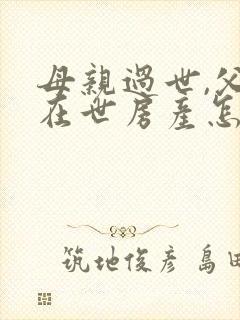 母親過世,父
在世房產怎
筑地俊彥 島田